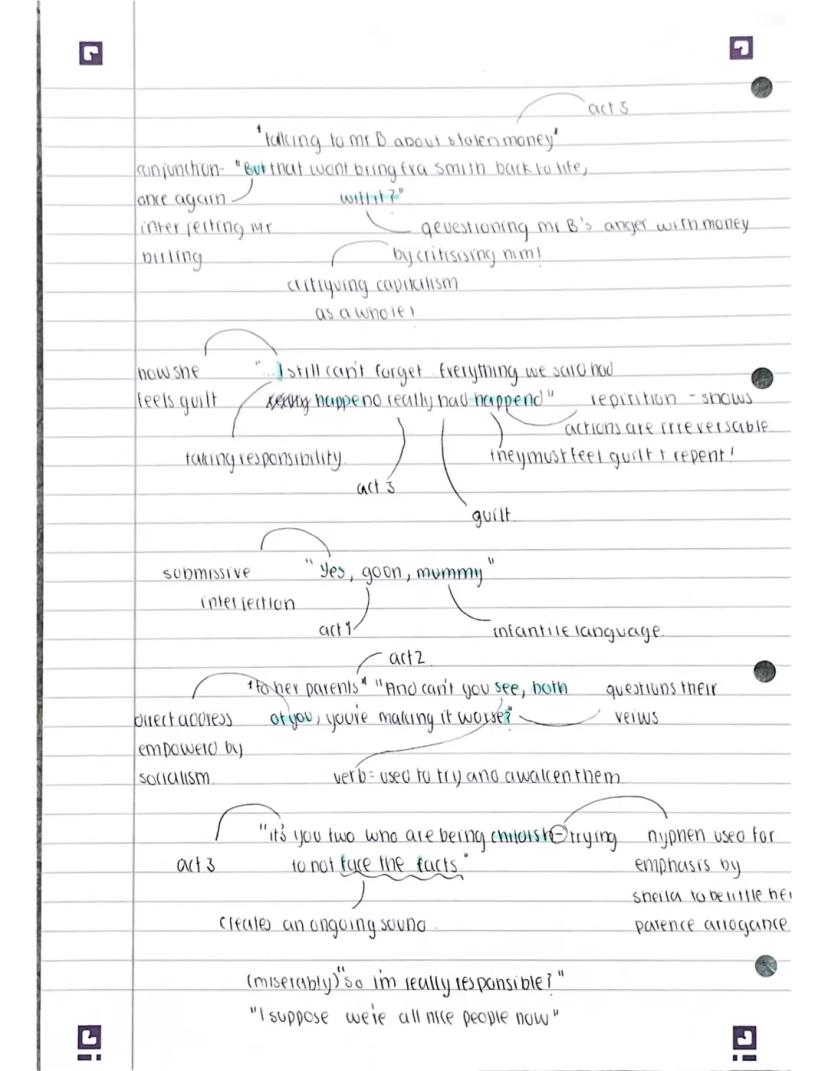 act 3
*talking to mr B about stolen money*
conjunction- "But that wont bring Eva Smith back to life,
once again will it?"
interjecting Mr qeuestioning mr B's anger with money
birling by critisising him!
critiqving capitalism
as a whole!
how she "...I still can't forget. Everything we said had
feels guilt happend really had happend" repitition - shows
actions are irreversable
taking responsibility they must feel guilt + repent!
act 3
guilt
submissive "Yes, go on, mummy"
interjection
act 1 infantile language
act 2
*to her parents* "And can't you see, both questions their
direct address of you, you're making it worse?" veiws
empowerd by
socialism verb = used to try and awaken them
"it's you two who are being childish - trying hyphen used for
act 3 to not face the facts" emphasis by
sheila to belittle her
creates an ongoing sound parence arrogance
(miserably) "so i'm really responsible?"
"I suppose we're all nice people now"